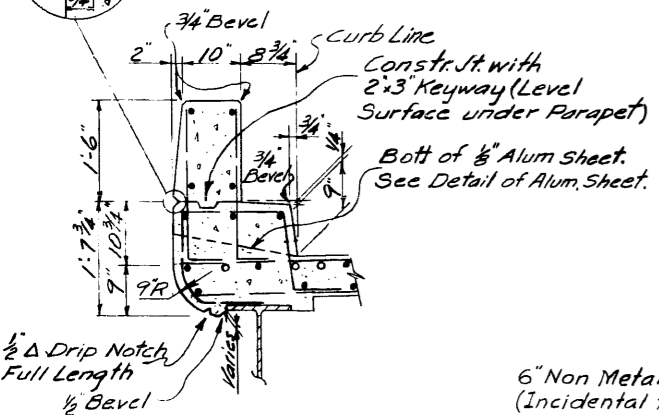 3/4" Bevel
2" 10" 8 3/4"
Curb Line
Constr. Jt. with
2"x3" Keyway (Level
Surface under Parapet)
3/4"
1/4"
1'-6"
3/4"
Bevel
9"
Bott of 1/8" Alum Sheet.
See Detail of Alum. Sheet.
1'-7 3/4"
10 3/4"
9"
9"R
1/2" Δ Drip Notch
Full Length
1/2" Bevel
Varies
6" Non Meta
(Incidental